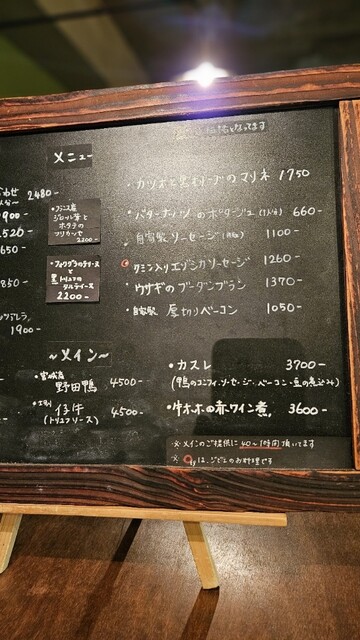 メニュー
2480-
900-
1520-
650-
850-
1900-
・フランス産
ジロール茸と
ホタテの
マリナッセ
2200-
・フォアグラのテリーヌ
と
黒トリュフの
タルティーヌ
2200-
・カツオと黒オリーブのマリネ 1750
・バターナッツのポタージュ(1人分) 660-
・自家製ソーセージ 1100-
クミン入りエゾシカソーセージ 1260-
・ウサギのブーダンブラン 1370-
・自家製 厚切りベーコン 1050-
～メイン～
・宮城産
野田鴨 4500-
仔牛 4500-
(トリュフソース)
・カスレ 3700-
(鴨のコンフィ・ソーセージ・ベーコン・豆の煮込み)
・牛ホホの赤ワイン煮 3600-
※メインのご提供に40～1時間頂いてます
※ は、ジビエのお料理です